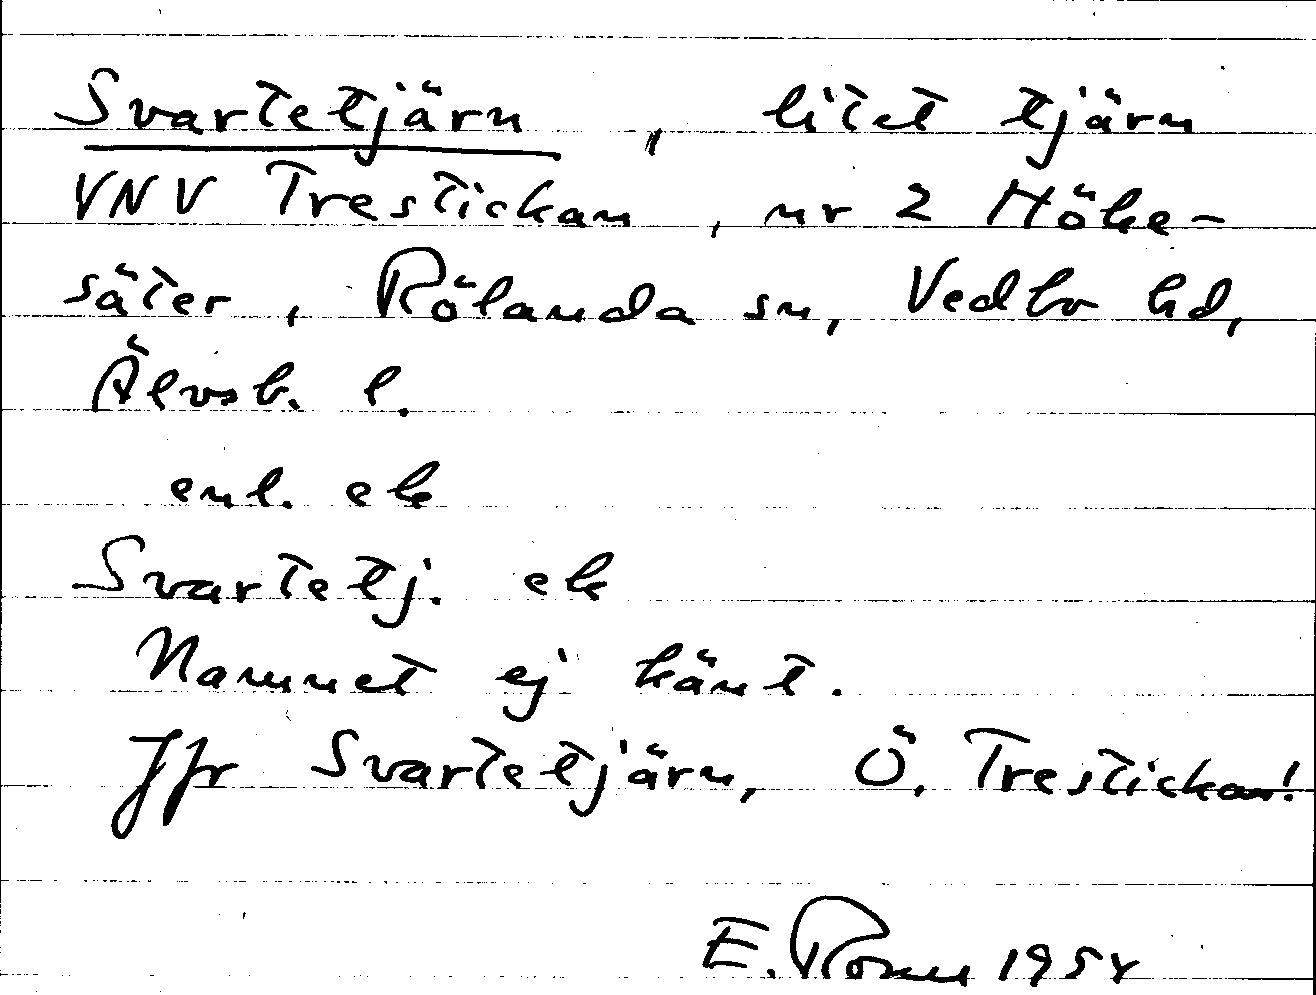 Svartetjärn, litet tjärn
VNV Trestickan, nr 2 Höke-
säter, Rölanda sn, Vedbo hd,
Älvsb. l.
enl. ek
Svartetj. ek
Namnet ej känt.
Jfr Svartetjärn, Ö. Trestickan!
E. 195